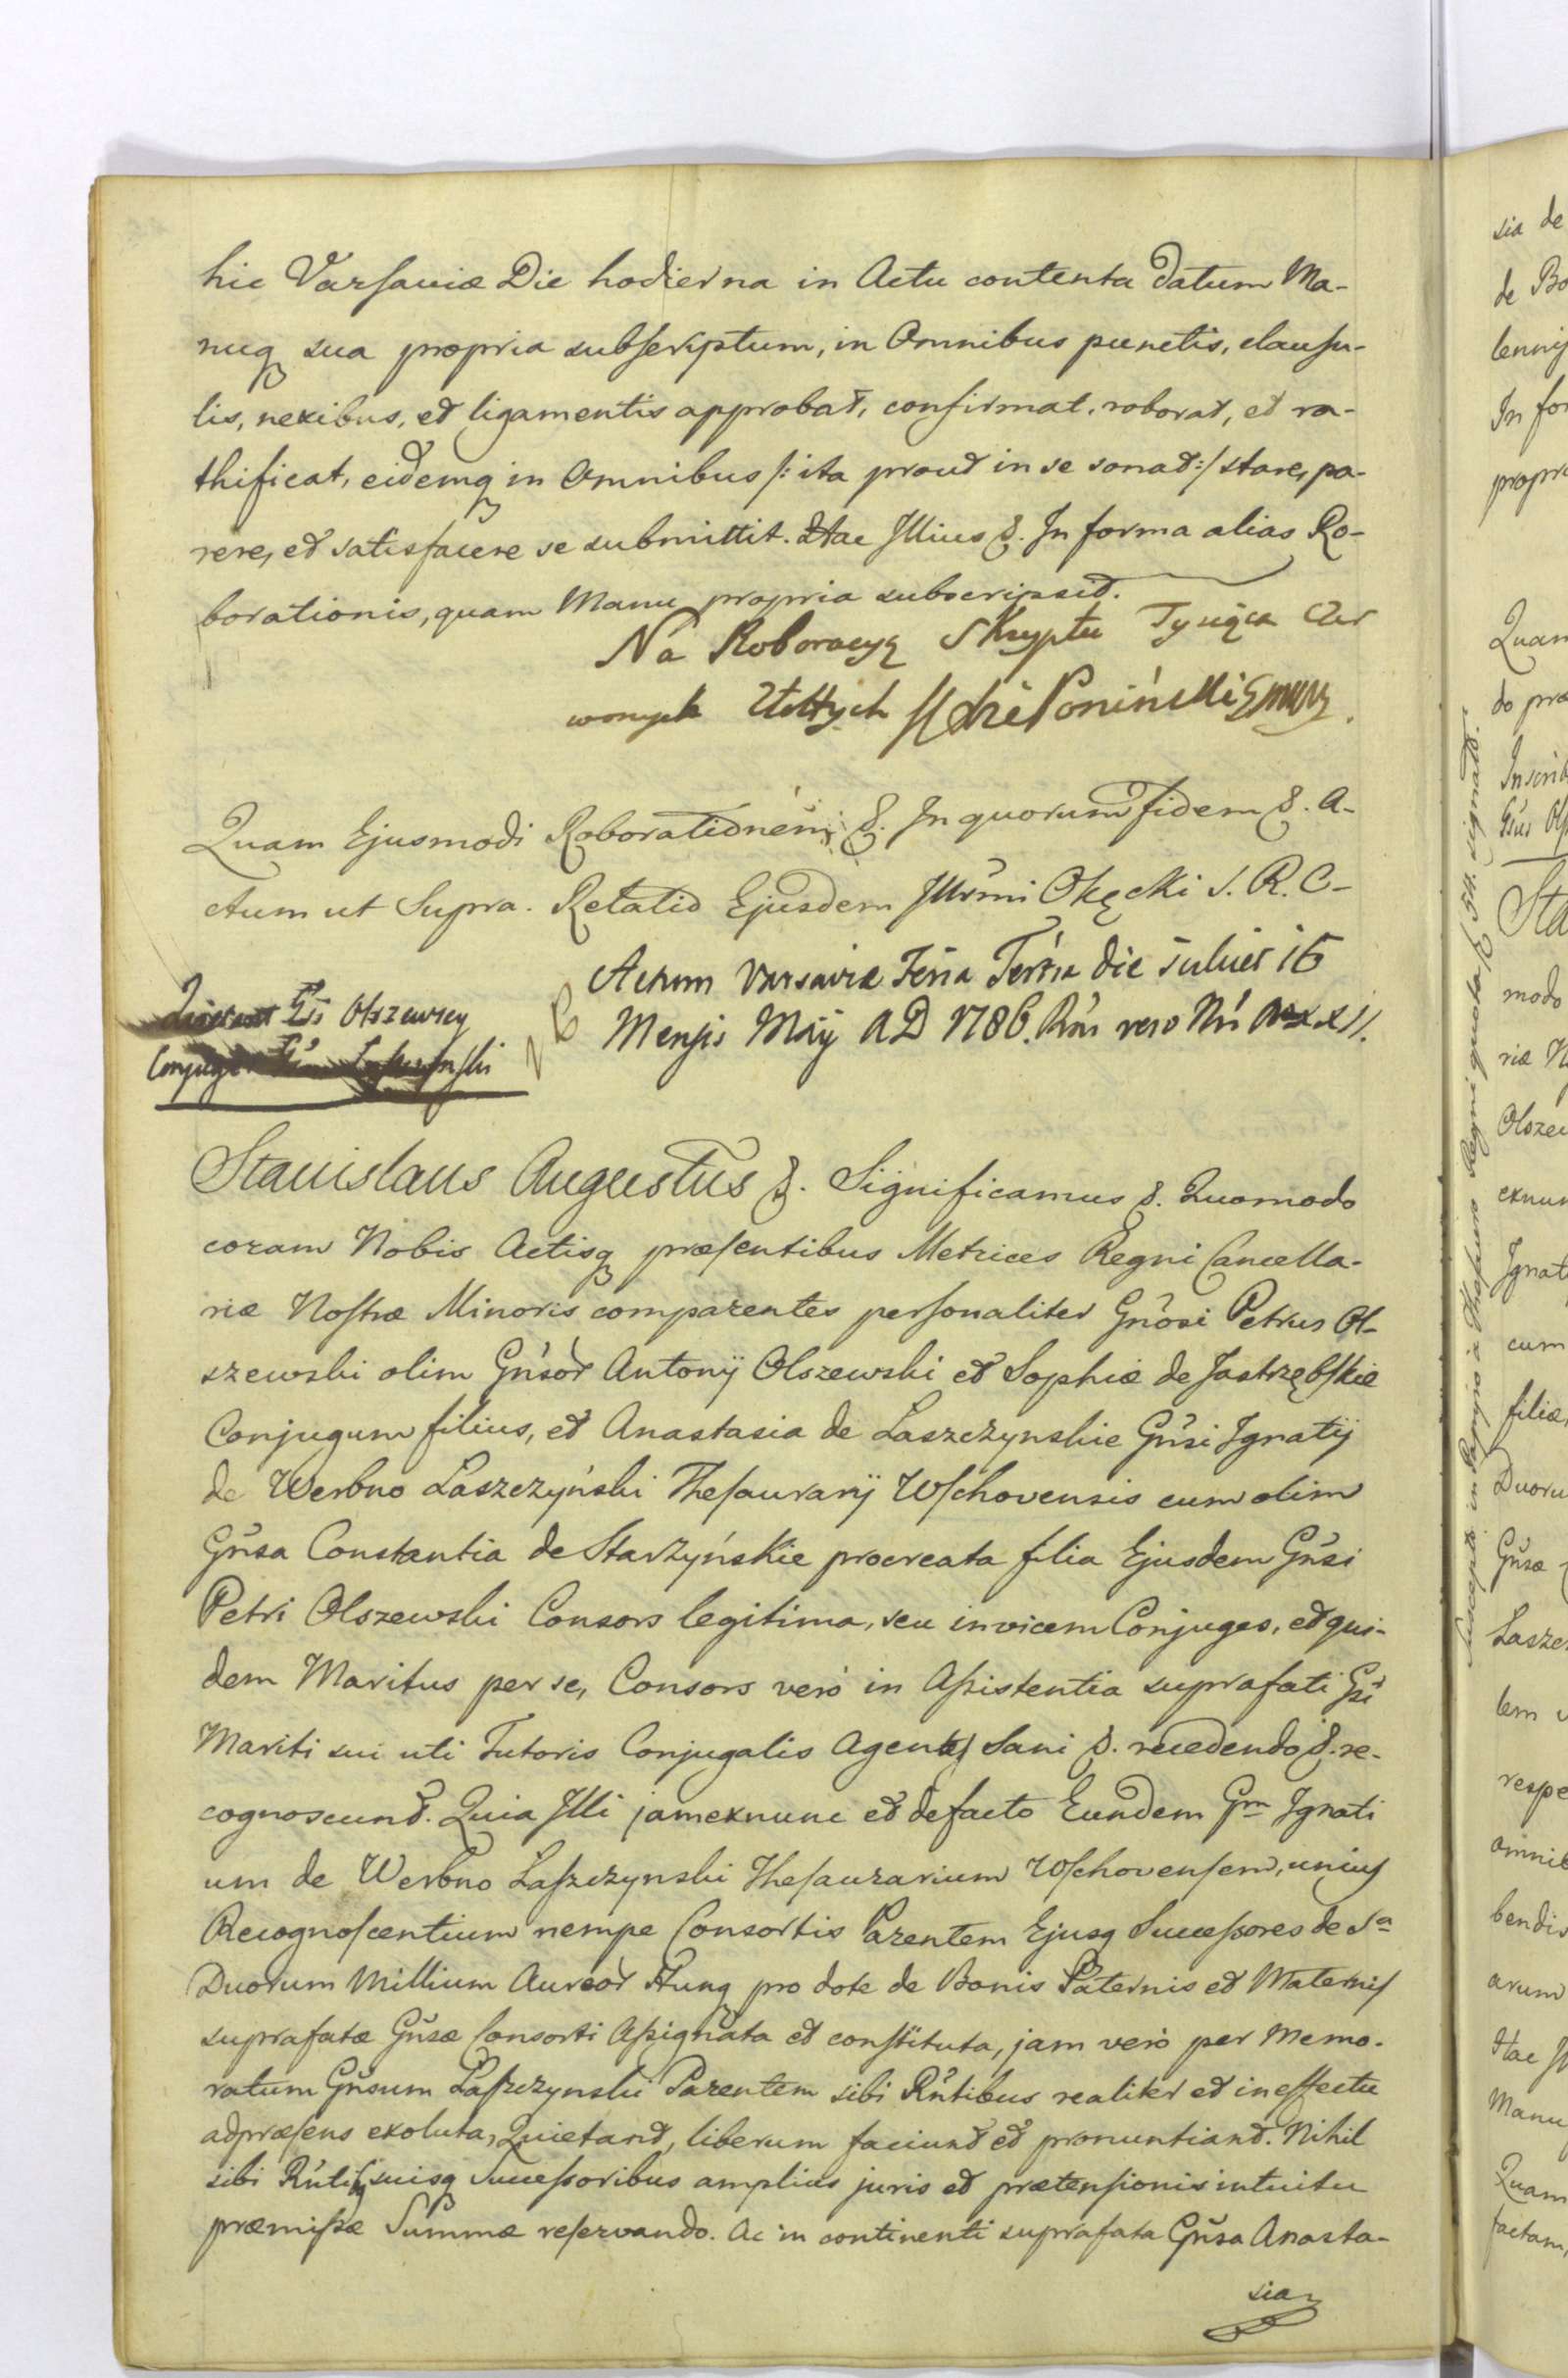 hic Varsaviæ Die hodierna in Actu contenta datum Ma-
nuq sua propria subscriptum, in Omnibus punctis, clausu-
lis, nexibus, et ligamentis approbat, confirmat, roborat, et ra-
thificat, eidemq in Omnibus /: ita prout in se sonat :/ stare, pa-
rere, et satisfacere se submittit. Hac Illius &. In forma alias Ro-
borationis, quam Manu propria subscripsit.
Na Roboracyą Skryptu Tysiąca Czer
wonych Złottych Poniński
Quam Ejusmodi Roborationem &. In quorum fidem &. A-
ctum ut Supra. Relatio Ejusdem Illrmi Okęcki S. R. C-
Actum Varsaviæ Feria Tertia die 16
Mensis Maij AD 1786. Rni vero Nri
Olszewscy
Stanislaus Augustus &. Significamus &. Quomodo
coram Nobis Actisq præsentibus Metrices Regni Cancella-
riæ Nostræ Minoris comparentes personaliter Gnosi Petrus Ol-
szewski olim Gnsor Antonij Olszewski et Sophiæ de Jastrzębskie
Conjugum filius, et Anastasia de Laszczynskie Gnsi Ignatij
de Werbno Laszczyński Thesaurarij Wschovensis cum olim
Gnsa Constantia de Starzyńskie procreata filia Ejusdem Gnsi
Petri Olszewski Consors legitima, seu invicem Conjuges, et qui-
dem Maritus per se, Consors verò in Assistentia suprafati Gsi
Mariti sui uti Tutoris Conjugalis Agentes Sani &. recedendo &. re-
cognoscund. Quia Illi jamexnunc et defacto Eundem Gm Ignati
um de Werbno Laszczynski Thesaurarium Wschovensem, unius
Recognoscentium nempe Consortis Parentem Ejusq Successores de Sa
Duorum Millium Aureor Hung pro dote de Bonis Paternis et Maternis
suprafatæ Gnsæ Consorti Assignata et constituta, jam verò per Memo-
ratum Gnsum Laszczynski Parentem sibi Rntibus realiter et in effectu
adpræsens exoluta, Quietand, liberum faciund et pronuntiand. Nihil
sibi suisq Successoribus amplius juris et prætensionis intuitu
præmissæ Summæ reservando. Ac in continenti suprafata Gnsa Anasta-
sia